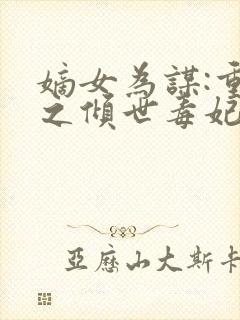 嫡女為謀:重
之傾世毒妃
亞歷山大斯卡